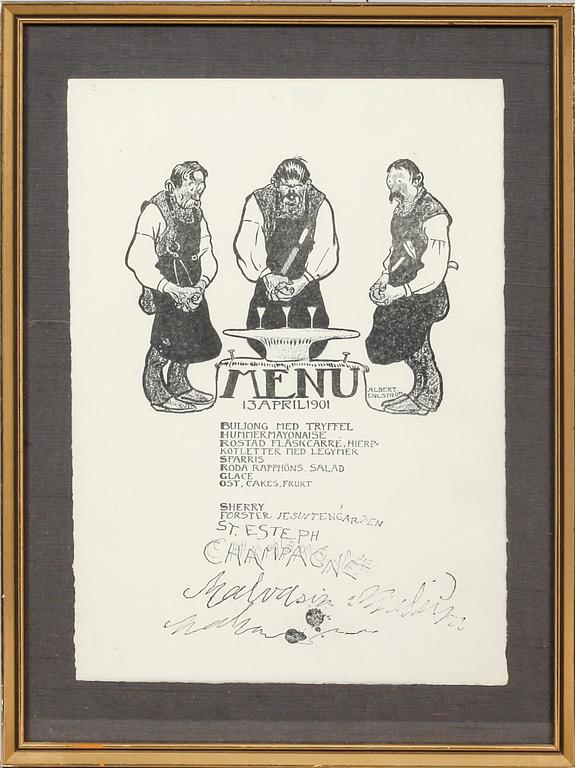 MENU
13 APRIL 1901
ALBERT
ENGSTRÖM
BULJONG MED TRYFFEL
HUMMERMAYONAISE
ROSTAD FLÄSKCARRÉ, HJERP-
KOTLETTER MED LEGYMER
SPARRIS
RÖDA RAPPHÖNS, SALAD
GLACE
OST, CAKES, FRUKT
SHERRY
FORSTER JESUITENGARDEN
ST. ESTEPH
CHAMPAGNE
Malvasir Madeira